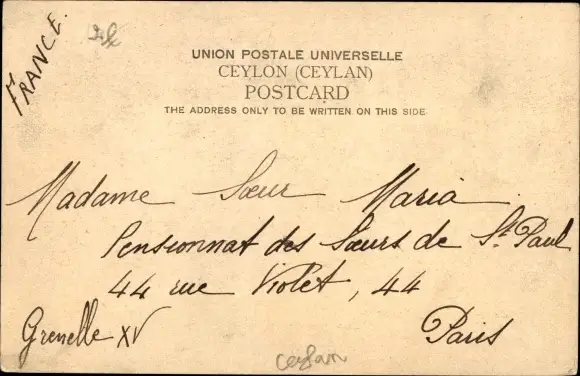 FRANCE.
UNION POSTALE UNIVERSELLE
CEYLON (CEYLAN)
POSTCARD
THE ADDRESS ONLY TO BE WRITTEN ON THIS SIDE.
Madame Sœur Maria
Pensionnat des Sœurs de St. Paul
44 rue Violet, 44
Grenelle XV Paris
Ceylan